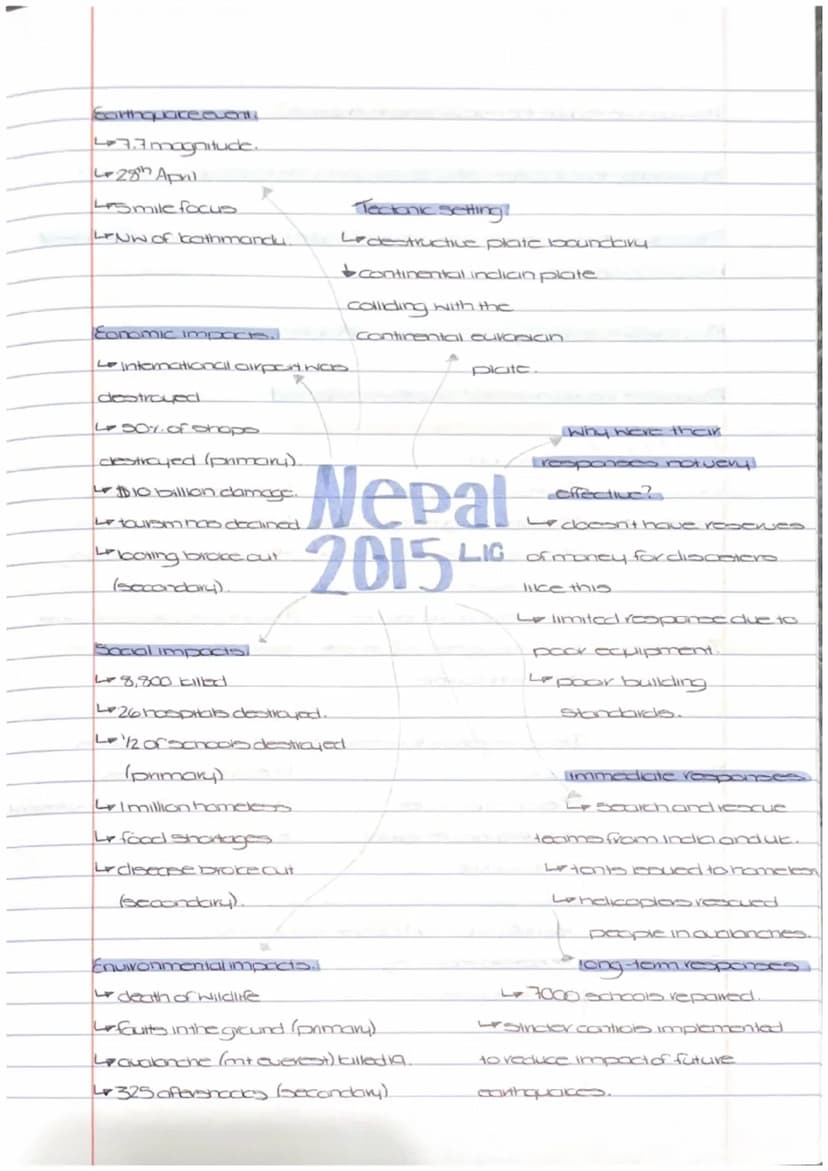 Earthquake event.
↳ 7.7 magnitude.
↳ 28th April
↳ 5 mile focus
↳ NW of kathmandu.
Tectonic setting
↳ destructive plate boundary
↓ continental indian plate
colliding with the
continental eurasian
plate.
Economic impacts.
↳ international airport was
destroyed
↳ 50% of shops
destroyed (primary)
↳ $10 billion damage.
↳ tourism has declined
↳ looting broke out
(secondary).
Nepal
2015 LIC
Why were their
responses not very
effective?
↳ doesn't have reserves
of money for disasters
like this
↳ limited response due to
poor equipment.
↳ poor building
standards.
Social impacts.
↳ 8,800 killed
↳ 26 hospitals destroyed.
↳ 1/2 of schools destroyed
(primary)
↳ 1 million homeless
↳ food shortages
↳ disease broke out
(secondary).
Immediate responses.
↳ Search and rescue
teams from India and UK.
↳ tents issued to homeless
↳ helicopters rescued
people in avalanches.
Environmental impacts.
↳ death of wildlife
↳ faults in the ground (primary)
↳ avalanche (mt everest) killed 19.
↳ 325 aftershocks (secondary)
long-term responses
↳ 7000 schools repaired.
↳ stricter controls implemented
to reduce impact of future
earthquakes.